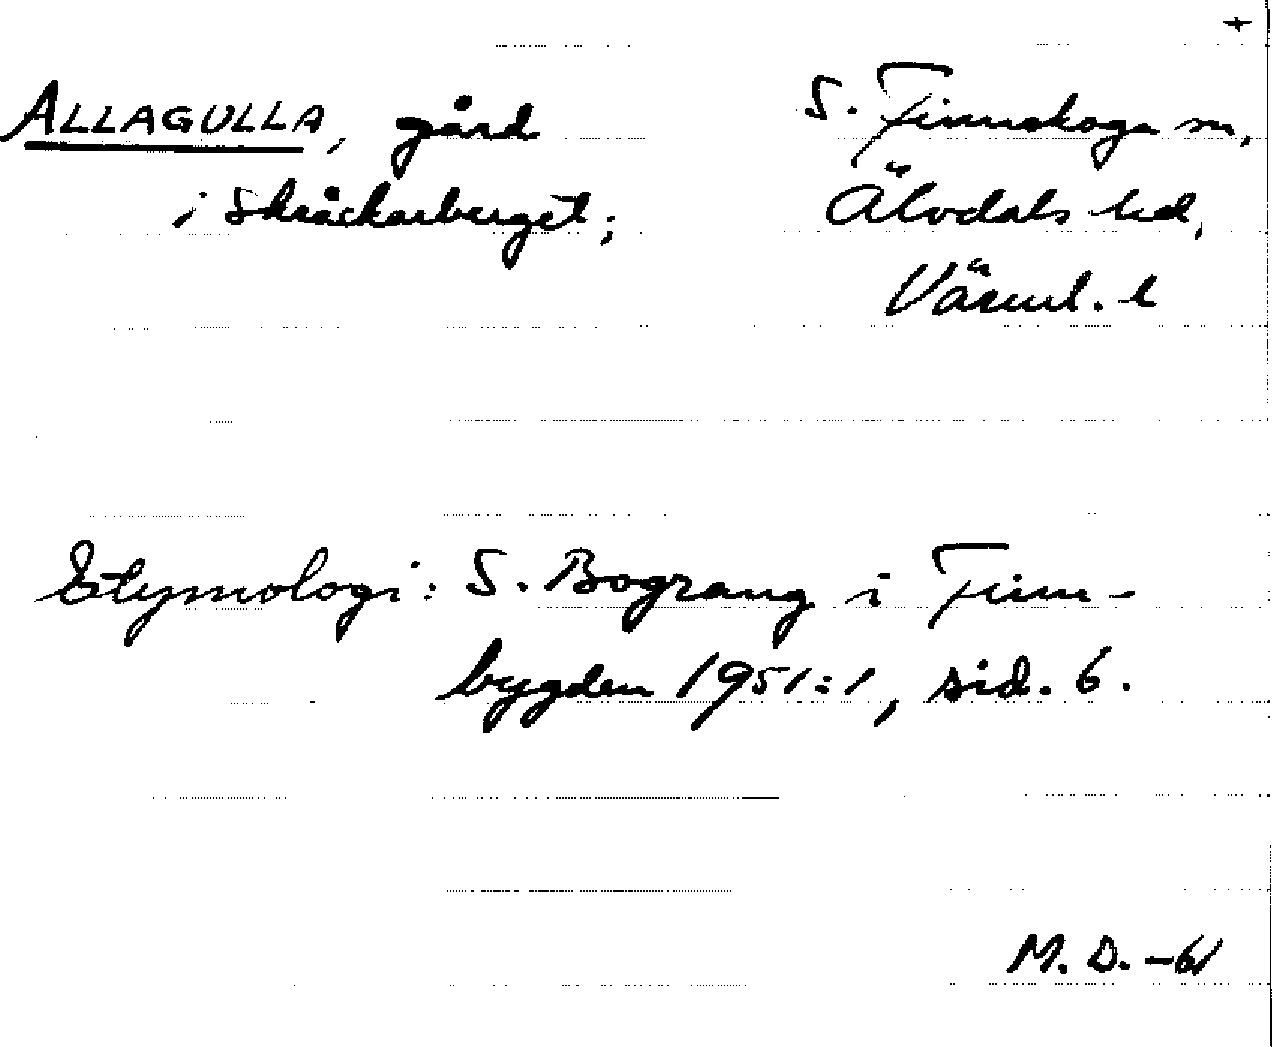 +
ALLAGULLA, gård
i Skråckarberget;
S. Finnskoga sn,
Älvdals hd,
Värml. l
Etymologi: S. Bograng i Finn-
bygden 1951:1, sid. 6.
M. D. -61